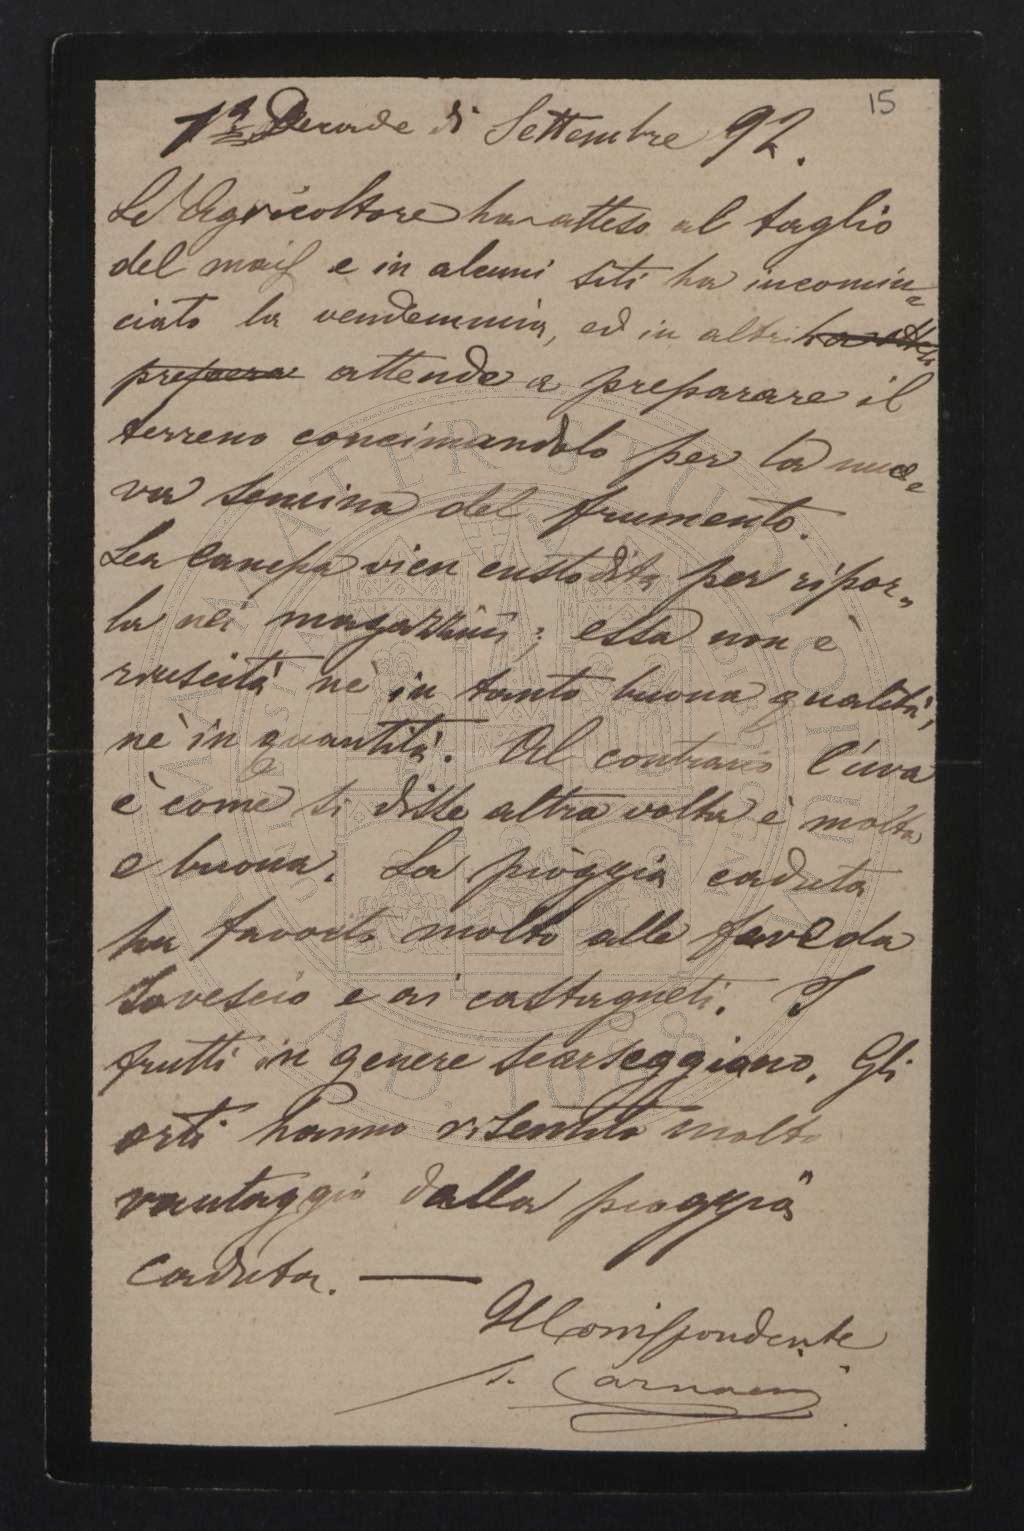 15
1ª Decade di Settembre 92.
L'Agricoltore ha atteso al taglio
del mais e in alcuni siti ha incomin=
ciato la vendemmia, ed in altri ha atteso
prepara attende a preparare il
terreno concimandolo per la nuo=
va semina del frumento.
La canepa vien custodita per ripor=
la nei magazzini; essa non è
riuscita nè in tanto buona qualità,
nè in quantità. Al contrario l'uva
è come si disse altra volta è molta
e buona. La pioggia caduta
ha favorito molto alle fave da
sovescio e ai castagneti. I
frutti in genere scarseggiano. Gli
orti hanno risentito molto
vantaggio dalla pioggia
caduta. —
Il Corrispondente
ALMA MATER STUDIORUM
A.D. 1088